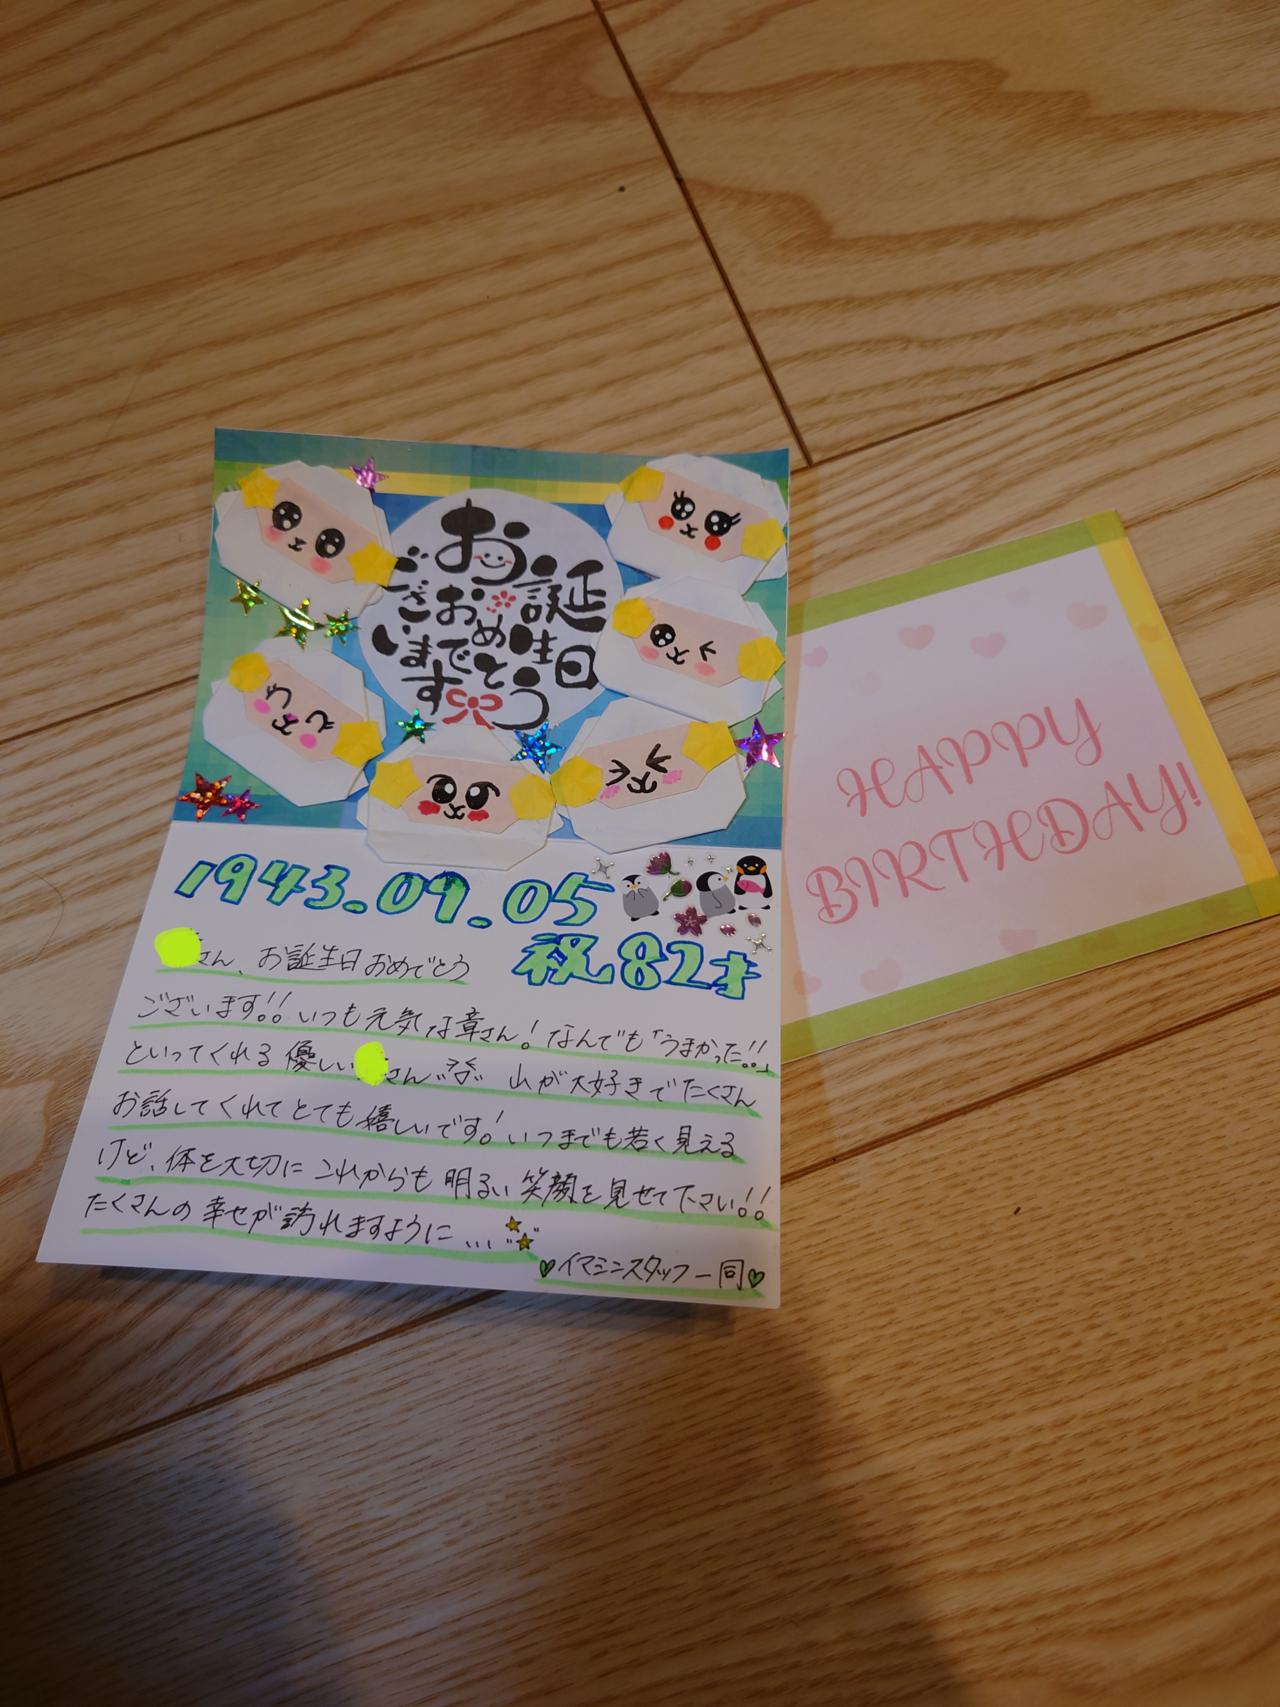 お誕生日
おめでとう
ございます
1943.09.05
祝82才
さん、お誕生日おめでとう
ございます!! いつも元気な章さん! なんでも「うまかった!!」
といってくれる優しい さん 山が大好きでたくさん
お話してくれてとても嬉しいです! いつまでも若く見える
けど、体を大切にこれからも明るい笑顔を見せて下さい!!
たくさんの幸せが訪れますように...
♥イマシンスタッフ一同♥
HAPPY
BIRTHDAY!